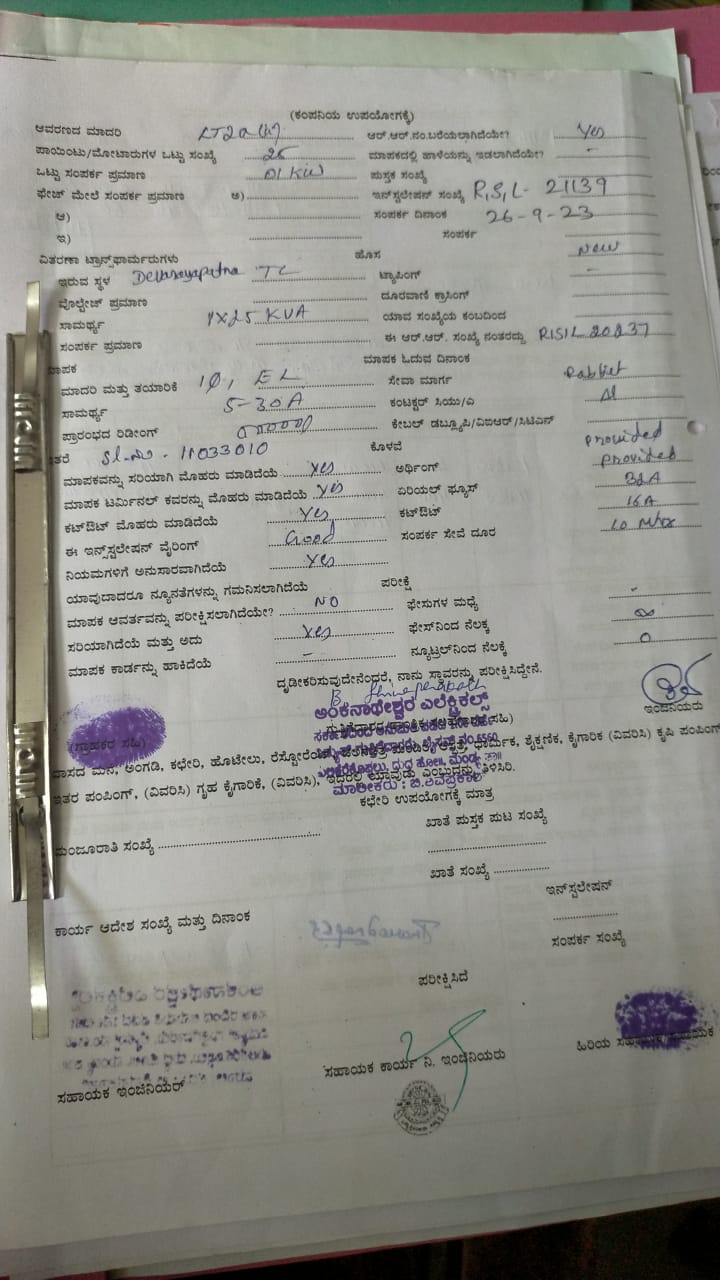 (ಕಂಪನಿಯ ಉಪಯೋಗಕ್ಕೆ)
ಆವರಣದ ಮಾದರಿ LT2a (ii) ಆರ್.ಆರ್.ನಂ.ಬರೆಯಲಾಗಿದೆಯೇ? Yes
ಪಾಯಿಂಟು/ಮೋಟಾರುಗಳ ಒಟ್ಟು ಸಂಖ್ಯೆ 25 ಮಾಪಕದಲ್ಲಿ ಹಾಳೆಯನ್ನು ಇಡಲಾಗಿದೆಯೇ? -
ಒಟ್ಟು ಸಂಪರ್ಕ ಪ್ರಮಾಣ 01 KW ಪುಸ್ತಕ ಸಂಖ್ಯೆ
ಫೇಜ್ ಮೇಲೆ ಸಂಪರ್ಕ ಪ್ರಮಾಣ ಅ) ಇನ್‌ಸ್ಟಲೇಷನ್ ಸಂಖ್ಯೆ R,S,L- 21139
ಆ) ಸಂಪರ್ಕ ದಿನಾಂಕ 26-9-23
ಇ) ಸಂಪರ್ಕ
ವಿತರಣಾ ಟ್ರಾನ್ಸ್‌ಫಾರ್ಮರುಗಳು ಹೊಸ New
ಇರುವ ಸ್ಥಳ TC ಟ್ಯಾಪಿಂಗ್ -
ವೊಲ್ಟೇಜ್ ಪ್ರಮಾಣ ದೂರವಾಣಿ ಕ್ರಾಸಿಂಗ್
ಸಾಮರ್ಥ್ಯ 1X25 KVA ಯಾವ ಸಂಖ್ಯೆಯ ಕಂಬದಿಂದ
ಸಂಪರ್ಕ ಪ್ರಮಾಣ ಈ ಆರ್.ಆರ್. ಸಂಖ್ಯೆ ನಂತರದ್ದು RISIL 20237
ಮಾಪಕ ಮಾಪಕ ಓದುವ ದಿನಾಂಕ
ಮಾದರಿ ಮತ್ತು ತಯಾರಿಕೆ 1Φ, EL ಸೇವಾ ಮಾರ್ಗ
ಸಾಮರ್ಥ್ಯ 5-30A ಕಂಟಕ್ಟರ್ ಸಿಯು/ಎ Al
ಪ್ರಾರಂಭದ ರಿಡೀಂಗ್ ಕೇಬಲ್ ಡಬ್ಲ್ಯೂಪಿ/ವಿಐಆರ್/ಸಿಟಿಎಸ್
ಇತರೆ Sl.no - 11033010 ಕೊಳವೆ Provided
ಮಾಪಕವನ್ನು ಸರಿಯಾಗಿ ಮೊಹರು ಮಾಡಿದೆಯೆ Yes ಅರ್ಥಿಂಗ್ Provided
ಮಾಪಕ ಟರ್ಮಿನಲ್ ಕವರನ್ನು ಮೊಹರು ಮಾಡಿದೆಯೆ Yes ಏರಿಯಲ್ ಫ್ಯೂಸ್ 32A
ಕಟ್‌ಔಟ್ ಮೊಹರು ಮಾಡಿದೆಯೆ Yes ಕಟ್‌ಔಟ್ 16A
ಈ ಇನ್‌ಸ್ಟಲೇಷನ್ ವೈರಿಂಗ್ Good ಸಂಪರ್ಕ ಸೇವೆ ದೂರ 10
ನಿಯಮಗಳಿಗೆ ಅನುಸಾರವಾಗಿದೆಯೆ Yes
ಯಾವುದಾದರೂ ನ್ಯೂನತೆಗಳನ್ನು ಗಮನಿಸಲಾಗಿದೆಯೆ ಪರೀಕ್ಷೆ
ಮಾಪಕ ಆವರ್ತವನ್ನು ಪರೀಕ್ಷಿಸಲಾಗಿದೆಯೇ? NO ಫೇಸುಗಳ ಮಧ್ಯೆ -
ಸರಿಯಾಗಿದೆಯೆ ಮತ್ತು ಅದು Yes ಫೇಸ್‌ನಿಂದ ನೆಲಕ್ಕೆ ∞
ಮಾಪಕ ಕಾರ್ಡನ್ನು ಹಾಕಿದೆಯೆ - ನ್ಯೂಟ್ರಲ್‌ನಿಂದ ನೆಲಕ್ಕೆ 0
ದೃಢೀಕರಿಸುವುದೇನೆಂದರೆ, ನಾನು ಸ್ಥಾವರನ್ನು ಪರೀಕ್ಷಿಸಿದ್ದೇನೆ.
ಅಂಕನಾಥೇಶ್ವರ ಎಲೆಕ್ಟ್ರಿಕಲ್ಸ್
(ಗ್ರಾಹಕರ ಸಹಿ) ಇಂಜಿನಿಯರು
ವಾಸದ ಮನೆ, ಅಂಗಡಿ, ಕಛೇರಿ, ಹೊಟೇಲು, ರೆಸ್ಟೋರೆಂಟ್, ಧಾರ್ಮಿಕ, ಶೈಕ್ಷಣಿಕ, ಕೈಗಾರಿಕ (ವಿವರಿಸಿ) ಕೃಷಿ ಪಂಪಿಂಗ್
ಇತರ ಪಂಪಿಂಗ್, (ವಿವರಿಸಿ) ಗೃಹ ಕೈಗಾರಿಕೆ, (ವಿವರಿಸಿ), ಇದರಲಿ ಯಾವುದು ಎಂಬುದನ್ನು ತಿಳಿಸಿರಿ.
ಕಛೇರಿ ಉಪಯೋಗಕ್ಕೆ ಮಾತ್ರ
ಖಾತೆ ಪುಸ್ತಕ ಪುಟ ಸಂಖ್ಯೆ
ಮಂಜೂರಾತಿ ಸಂಖ್ಯೆ
ಖಾತೆ ಸಂಖ್ಯೆ
ಇನ್‌ಸ್ಟಲೇಷನ್
ಕಾರ್ಯ ಆದೇಶ ಸಂಖ್ಯೆ ಮತ್ತು ದಿನಾಂಕ
ಸಂಪರ್ಕ ಸಂಖ್ಯೆ
ಪರೀಕ್ಷಿಸಿದೆ
ಸಹಾಯಕ ಇಂಜಿನಿಯರ್ ಸಹಾಯಕ ಕಾರ್ಯ ನಿ. ಇಂಜಿನಿಯರು ಹಿರಿಯ ಸಹಾಯಕ